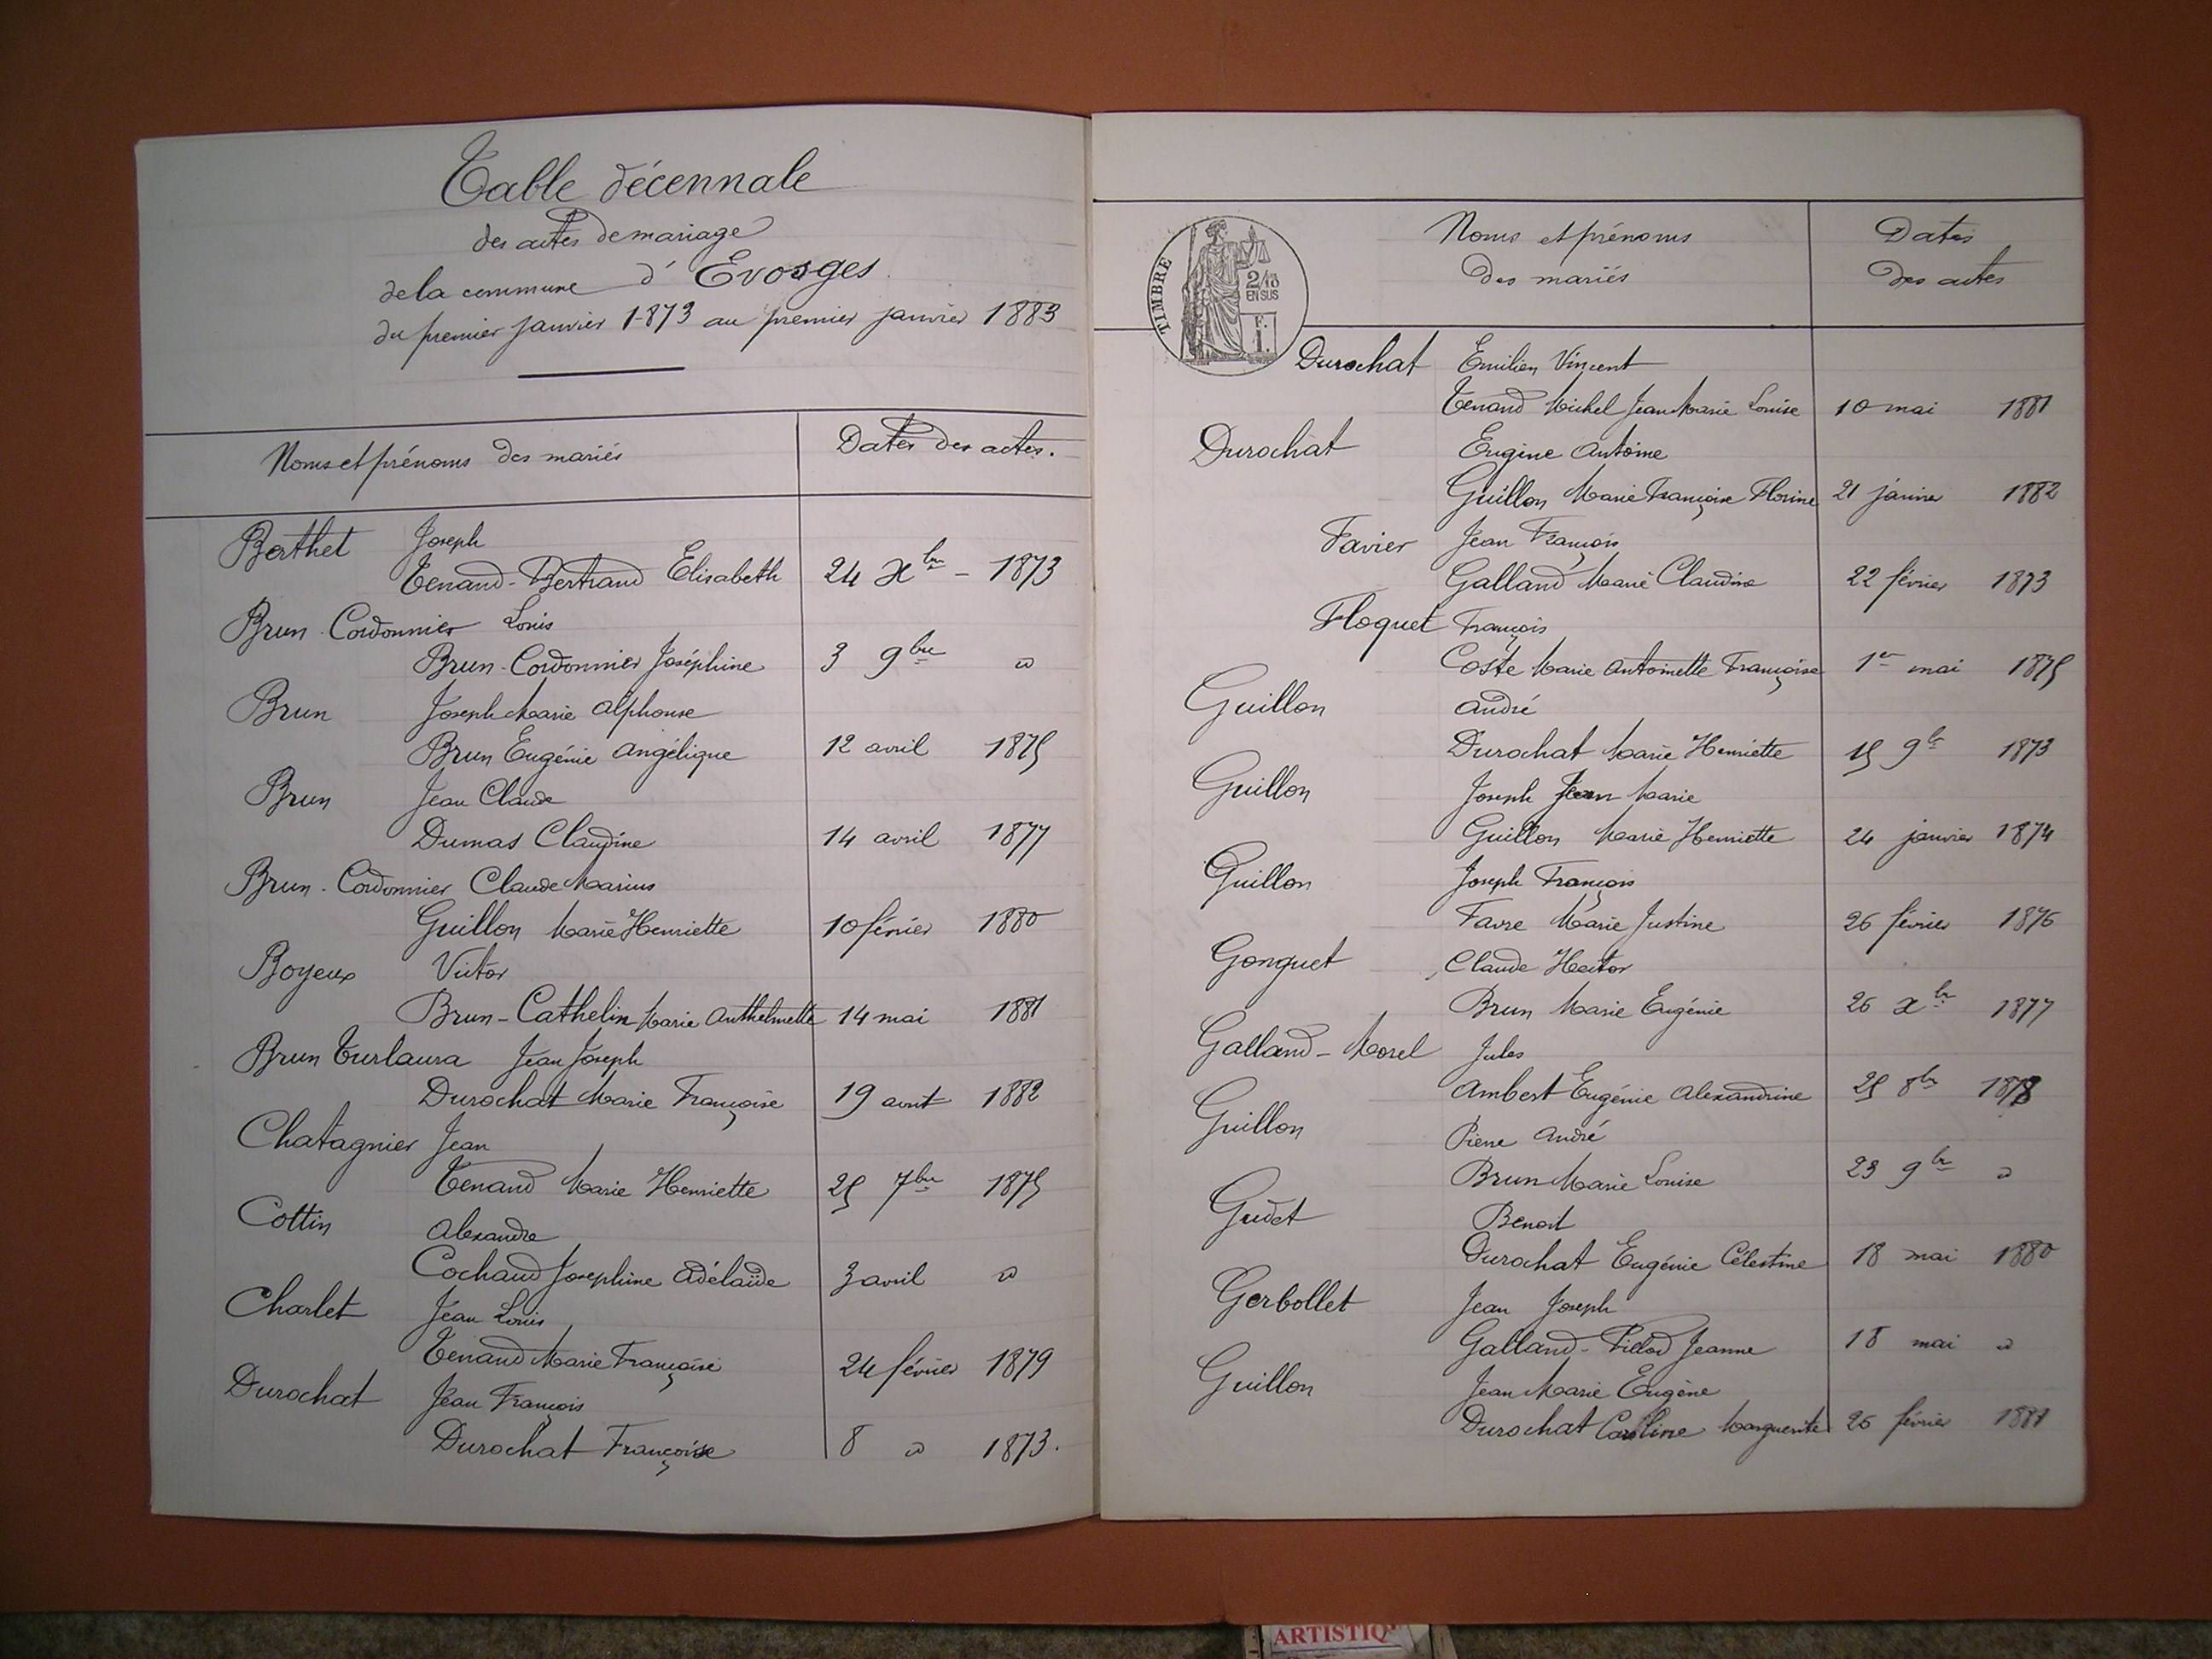 Table décennale
des actes de mariage
de la commune d'Evosges.
du premier janvier 1873 au premier janvier 1883
Noms et prénoms des mariés Dates des actes.
Berthet Joseph
Tenand-Bertrand Elisabeth 24 Xbre - 1873
Brun-Cordonnier Louis
Brun-Cordonnier Joséphine 3 9bre d
Brun Joseph Marie Alphonse
Brun Eugénie Angélique 12 avril 1875
Brun Jean Claude
Dumas Claudine 14 avril 1877
Brun-Cordonnier Claude Marius
Guillon Marie Henriette 10 février 1880
Boyeux Victor
Brun-Cathelin Marie Anthelmette 14 mai 1881
Brun Turlaura Jean Joseph
Durochat Marie Françoise 19 avril 1882
Chatagnier Jean
Tenand Marie Henriette 25 7bre 1875
Cottin Alexandre
Cochaud Josephine Adélaïde 3 avril d
Charlet Jean Louis
Tenand Marie Françoise 24 février 1879
Durochat Jean François
Durochat Françoise 8 d 1873.
TIMBRE
2/10
EN SUS
F.
1.
Noms et prénoms Dates
des mariés des actes
Durochat Emilien Vincent
Tenand Michel Jean Marie Louise 10 mai 1881
Durochat Eugène Antoine
Guillon Marie Françoise Florine 21 janvier 1882
Favier Jean François
Galland Marie Claudine 22 février 1873
Floquet François
Coste Marie Antoinette Françoise 1er mai 1875
Guillon André
Durochat Marie Henriette 15 9bre 1873
Guillon Joseph Jean Marie
Guillon Marie Henriette 24 janvier 1874
Guillon Joseph François
Favre Marie Justine 26 février 1876
Gonguet Claude Hector
Brun Marie Eugénie 26 xbre 1877
Galland-Morel Jules
Ambert Eugénie Alexandrine 25 8bre 1878
Guillon Pierre André
Brun Marie Louise 23 9bre d
Gudet Benoit
Durochat Eugénie Célestine 18 mai 1880
Gerbollet Jean Joseph
Galland-Pillod Jeanne 18 mai d
Guillon Jean Marie Eugène
Durochat Caroline Marguerite 26 février 1881
ARTISTIQ